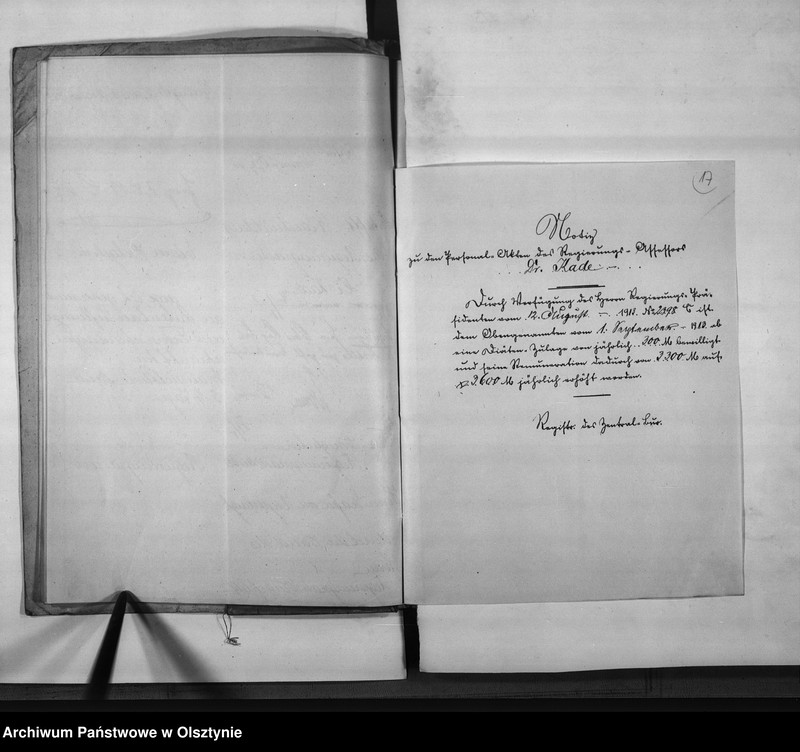 17
Notiz
zu den Personal-Akten des Regierungs-Assessors
Dr. Kade
Durch Verfügung des Herrn Regierungs-Prä-
sidenten vom 12. August 1910. No 2398 ist
dem Obengenannten vom 1. September 1910. ab
eine Diäten-Zulage von jährlich 200 M bewilligt
und seine Remuneration dadurch von 2200 M auf
2600 M jährlich erhöht worden.
Registr. des Zentral-Bur.
Archiwum Państwowe w Olsztynie